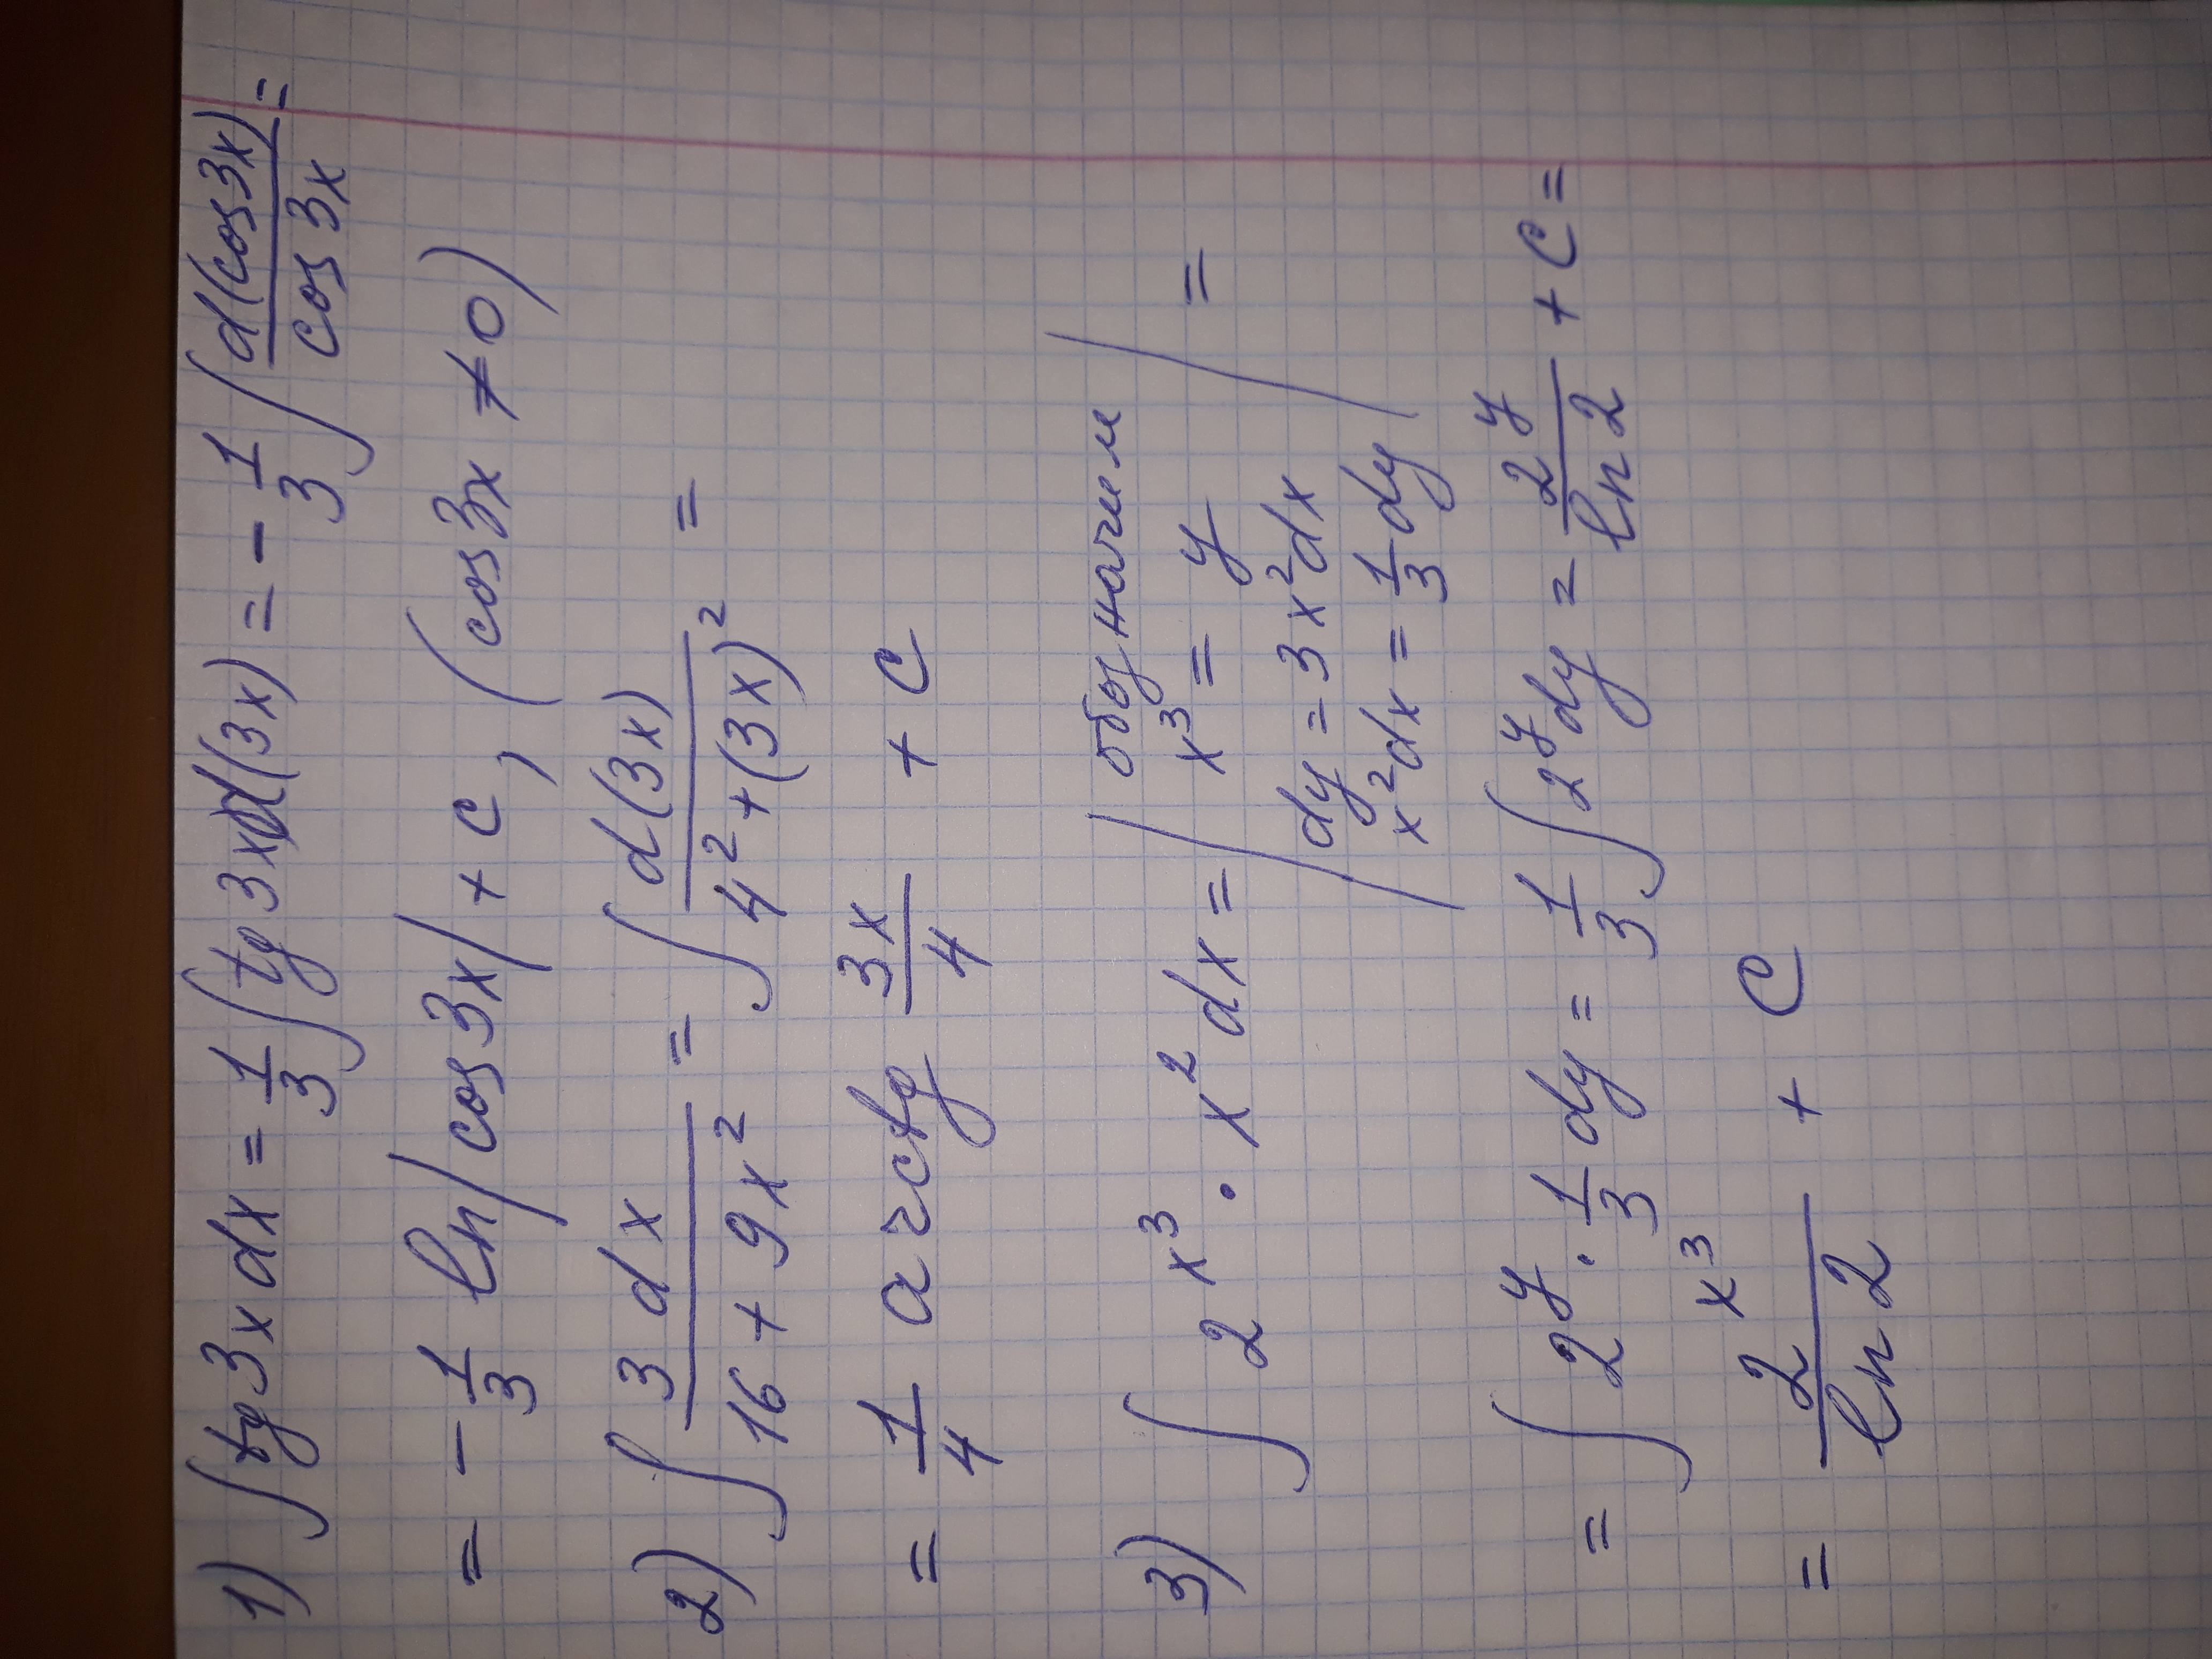 1) ∫tg3xdx = 1/3 ∫tg3xd(3x) = - 1/3 ∫ d(cos3x)/cos3x =
= - 1/3 ln|cos3x| + c, (cos3x ≠ 0)
2) ∫ 3dx/(16 + 9x²) = ∫ d(3x)/(4² + (3x)²) =
= 1/4 arctg 3x/4 + c
3) ∫ 2^x³ · x² dx = | обозначим
x³ = y
dy = 3x²dx
x²dx = 1/3 dy | =
= ∫ 2^y · 1/3 dy = 1/3 ∫ 2^y dy = 2^y/ln2 + c =
= 2^x³/ln2 + c